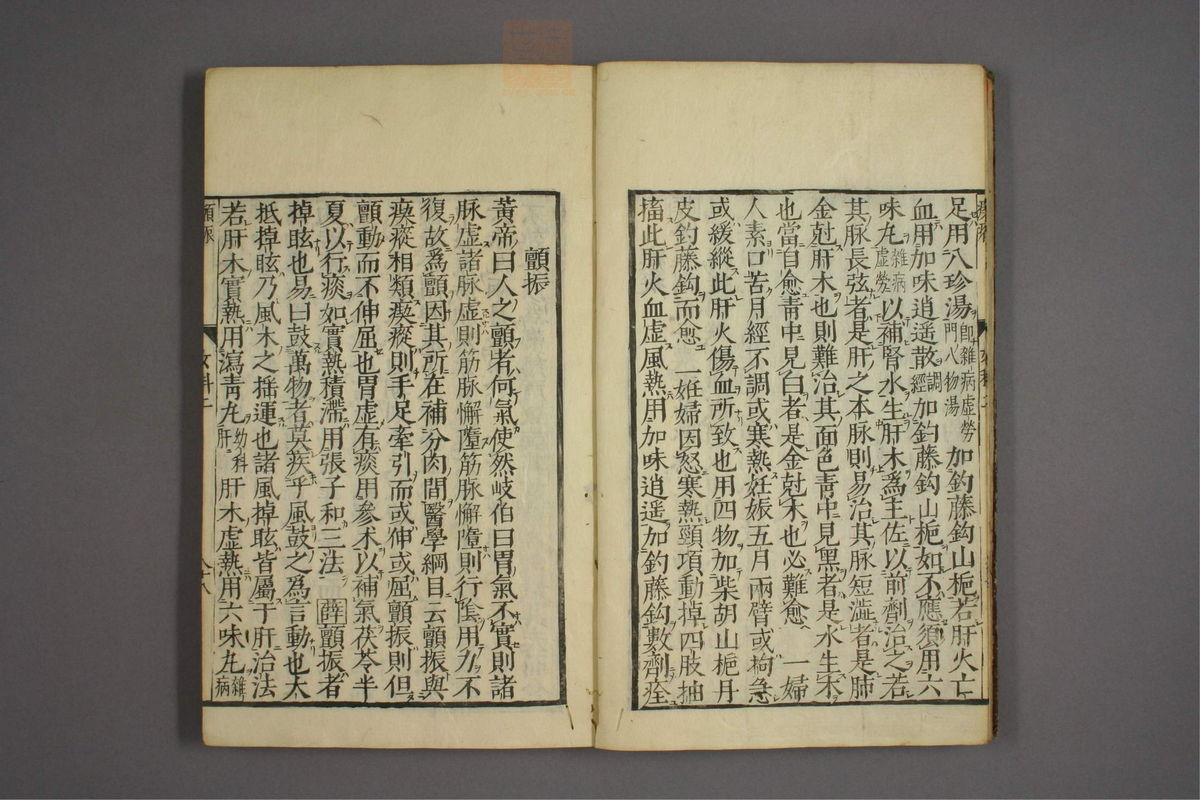 足用八珍湯即雜病虛勞門八物湯加釣藤鈎山梔若肝火亡
血用加味逍遥散調經加釣藤鈎山梔如不應須用六
味丸雜病虛勞以補腎水生肝木爲主佐以前劑治之若
其脉長弦者是肝之本脉則易治其脉短澁者是肺
金尅肝木也則難治其面色靑中見黑者是水生木
也當自愈靑中見白者是金尅木也必難愈 一婦
人素口苦月經不調或寒熱妊娠五月兩臂或拘急
或緩縱此肝火傷血所致也用四物加柴胡山梔丹
皮釣藤鈎而愈 一姙婦因怒寒熱頸項動掉四肢抽
搐此肝火血虛風熱用加味逍遥加釣藤鈎數劑痊
顫振
黃帝曰人之顫者何氣使然岐伯曰胃氣不實則諸
脉虛諸脉虛則筋脉懈墮筋脉懈墮則行陰用力不
復故爲顫因其所在補分肉間醫學綱目云顫振與
瘈瘲相類瘈瘲則手足牽引而或伸或屈顫振則但
顫動而不伸屈也胃虛有痰用參术以補氣茯苓半
夏以行痰如實熱積滯用張子和三法 薛顫振者
掉眩也易曰鼓萬物者莫疾乎風鼓之爲言動也大
抵掉眩乃風木之揺運也諸風掉眩皆屬于肝治法
若肝木實熱用瀉靑丸幼科肝肝木虛熱用六味丸雜病
顫振
女科二